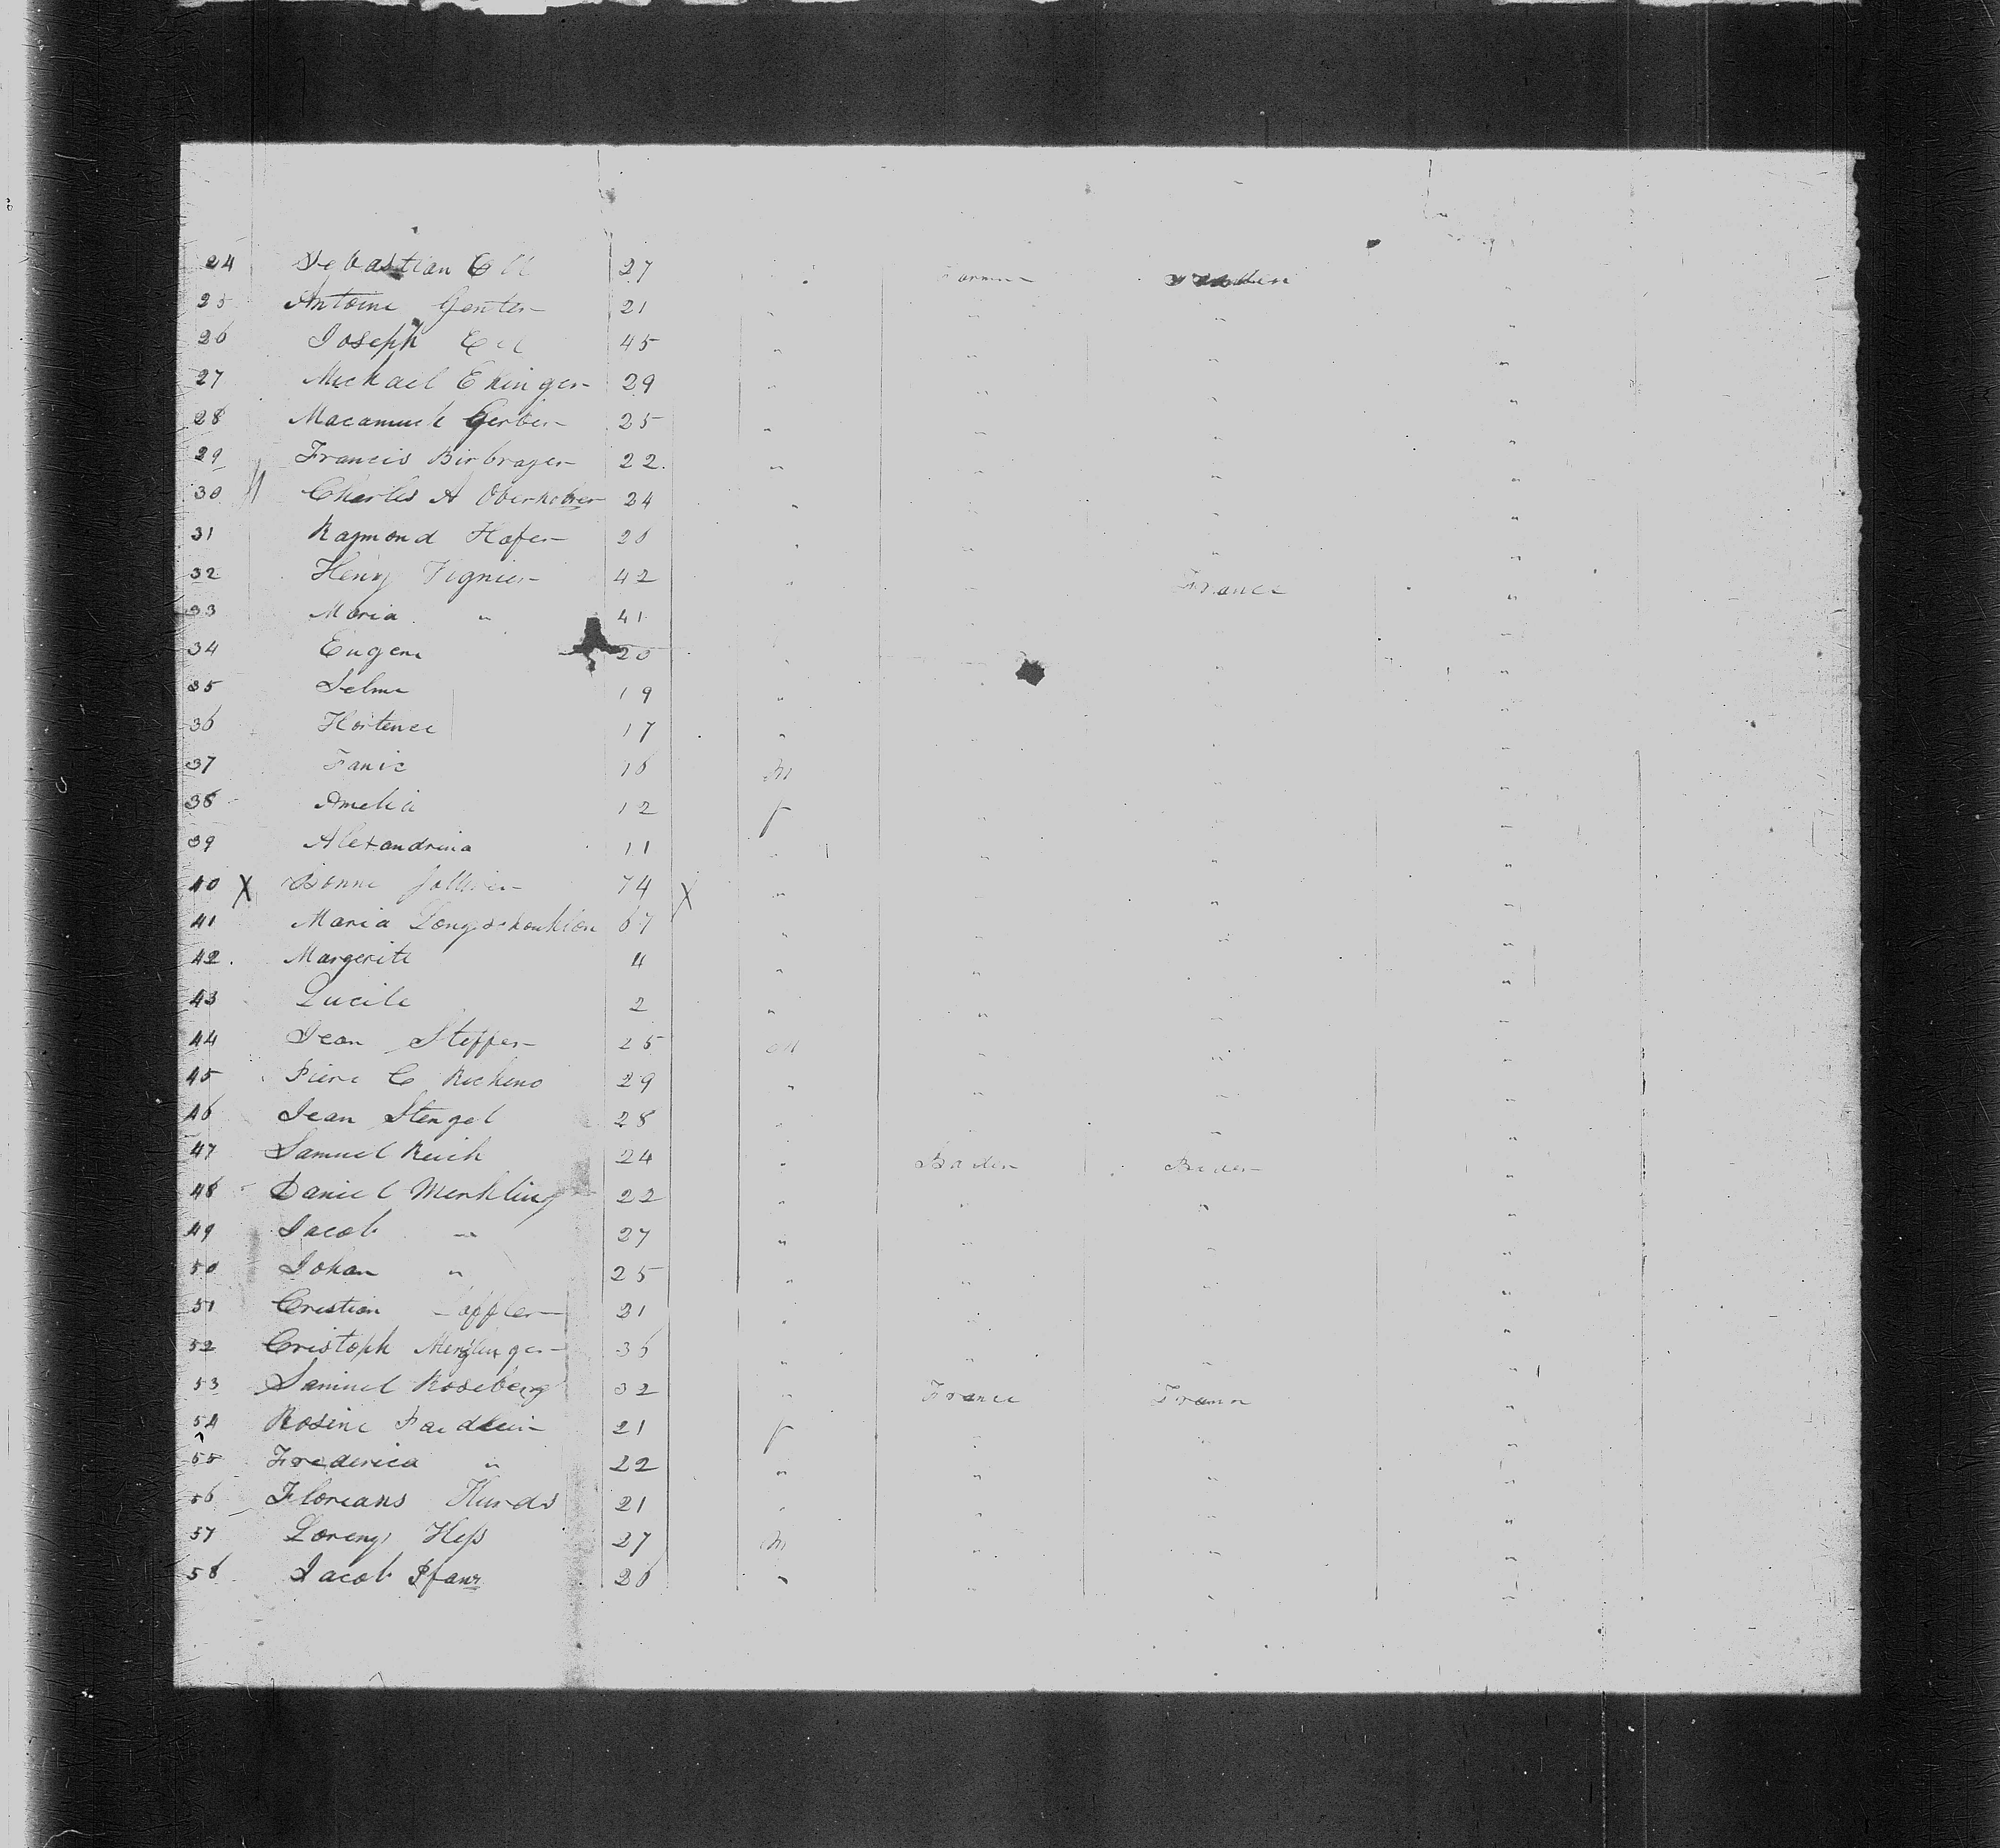 24 Sebastian Ell 27 Farmer Baden
25 Antoine Genter 21 " " " "
26 Joseph Ell 45 " " " "
27 Michael Ehinger 29 " " " "
28 Gerber 25 " " " "
29 Francis Birbrager 22 " " " "
30 Charles A 24 " " " "
31 Raymond Hafer 26 " " " "
32 Henry 42 " " France "
33 Maria " 41 "
34 Eugene 20 " " "
35 19 " " "
36 Hortence 17 " " "
37 Fanie 16 M " "
38 Amelia 12 f " "
39 Alexandrina 11 " " " "
40 X 74 X " " " "
41 Maria 67 " " " "
42. Margerite 4 " " " "
43 Lucile 2 " " " "
44 Jean Steffer 25 M " " "
45 Piere C 29 " " " "
46 Jean Stengel 28 " " " "
47 Samuel Reich 24 " Baden Baden "
48 Daniel Merkling 22 " " " "
49 Jacob " 27 " " " "
50 Johan " 25 " " " "
51 Cristian Löffler 21 " " " "
52 Cristoph 36 " " " "
53 Samuel Roseberg 32 " France France "
54 Rosine 21 f " " "
55 Frederica " 22 " " " "
56 Florians 21 " " " "
57 Lorenz Heß 27 M " " "
58 Jacob Pfanz 26 " " " "